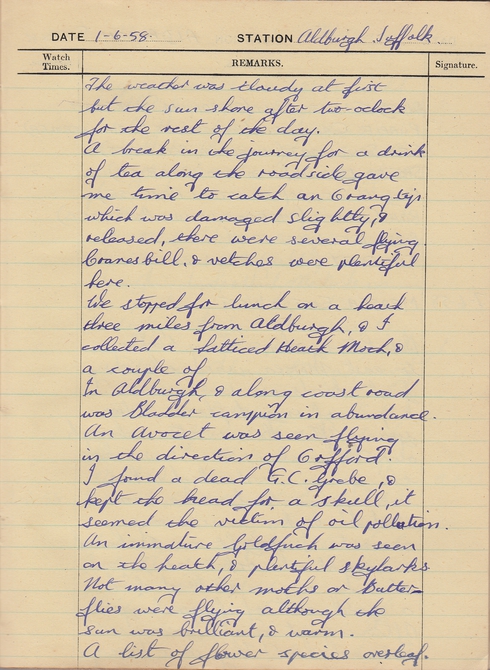 DATE 1-6-58. STATION Aldburgh Suffolk
Watch Times. REMARKS. Signature.
The weather was cloudy at first
but the sun shone after two oclock
for the rest of the day.
A break in the journey for a drink
of tea along the roadside gave
me time to catch an Orang tip
which was damaged slightly, &
released, there were several flying.
Cranesbill, & vetches were plentiful
here.
We stopped for lunch on a heath
three miles from Aldburgh, & I
collected a Latticed Heath Moth, &
a couple of
In Aldburgh, & along coast road
was Bladder campion in abundance.
An Avocet was seen flying
in the direction of Orfford.
I found a dead G.C. Grebe, &
kept the head for a skull, it
seemed the victim of oil pollution.
An immature Goldfinch was seen
on the heath, & plentiful skylarks
Not many other moths or Butter-
flies were flying although the
sun was brilliant, & warm.
A list of flower species overleaf.